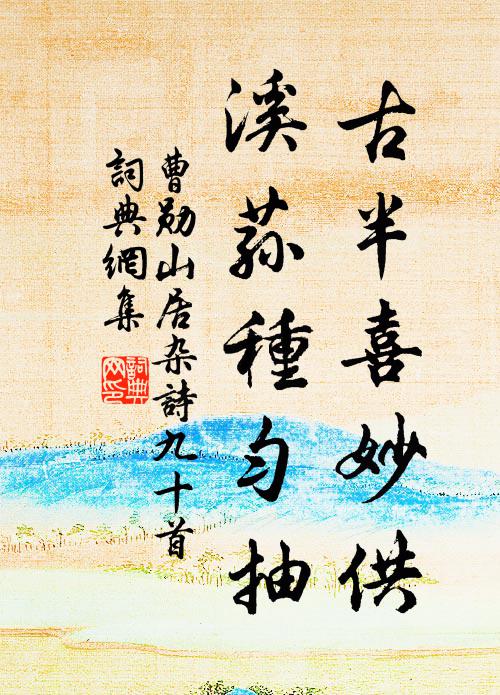 古半喜妙供
溪蓀種勻抽
曹勛山居杂詩九十首
詞典網集
詞典
网印